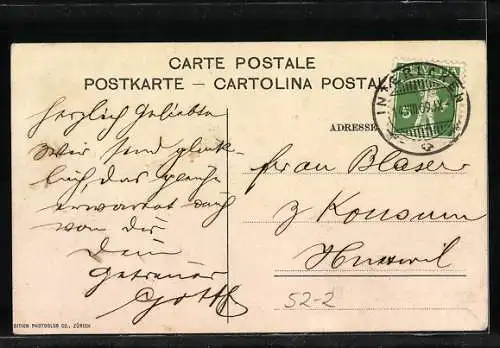 CARTE POSTALE
POSTKARTE — CARTOLINA POSTALE
INTERLAKEN
VIII.09
5
ADRESSE
Herzlich Geliebte
Wir sind glück-
lich, das gleiche
erwartet auch
von dir
Dein
Getreuer
Gottf
Frau Blaser
z Konsum
Huttwil
52-2
EDITION PHOTOGLOB CO., ZÜRICH